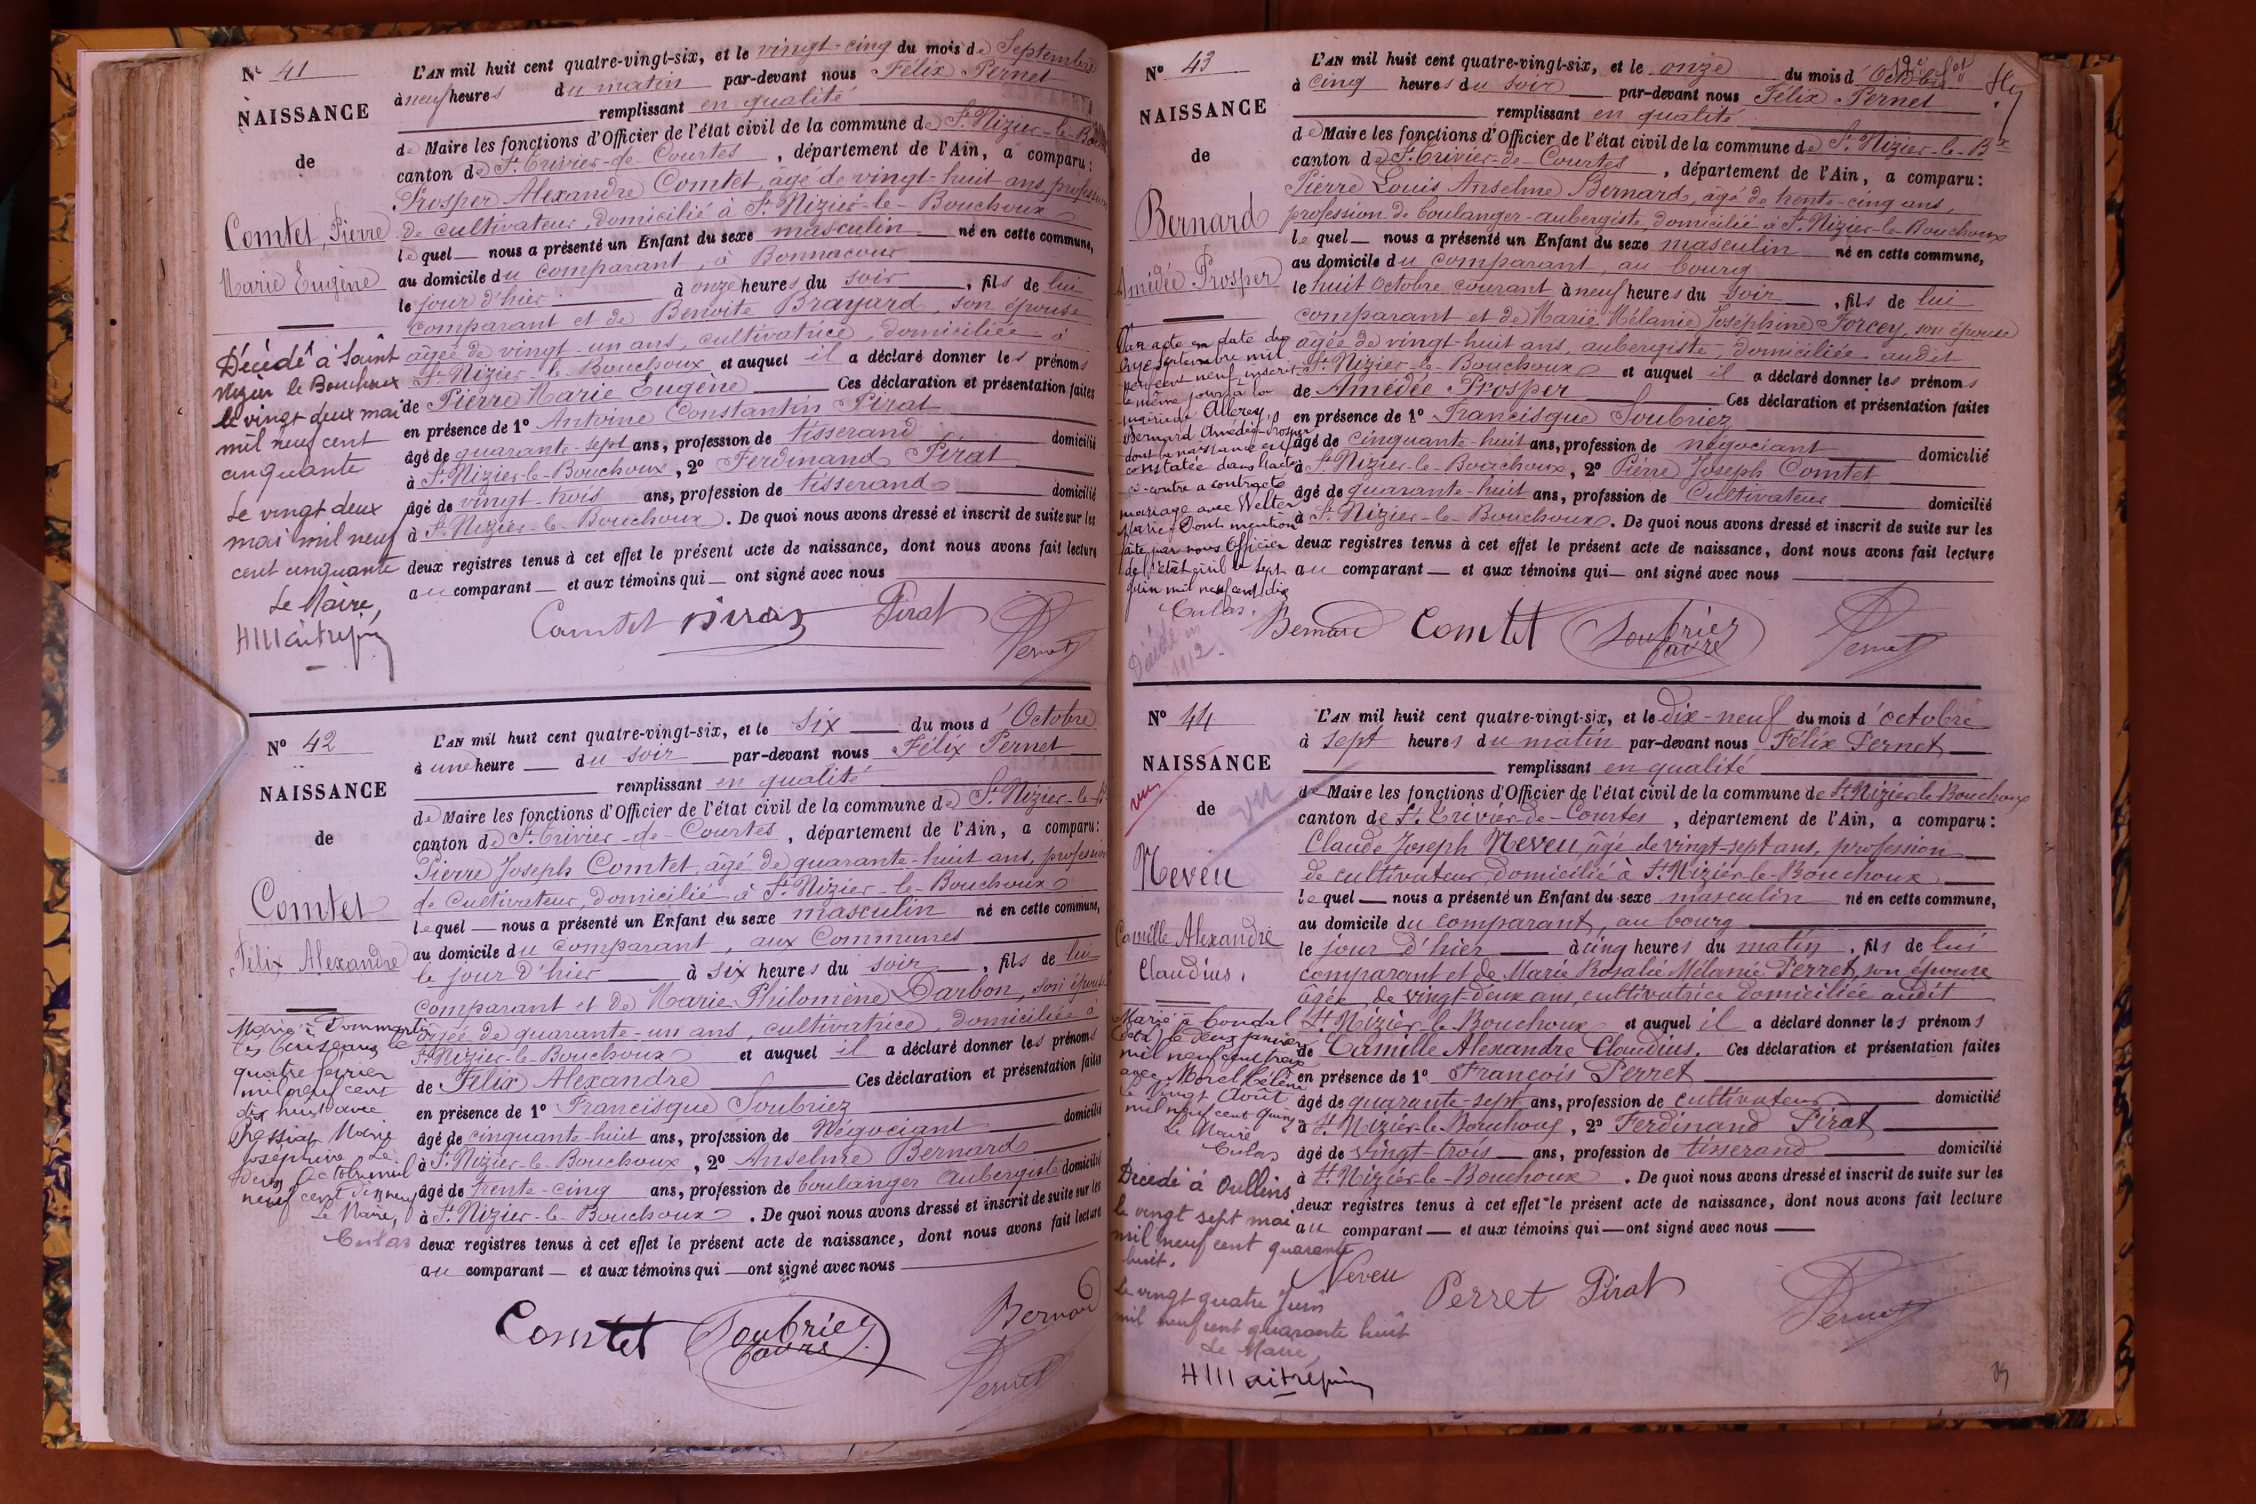 Nº 41
NAISSANCE
de
Comtet, Pierre
Marie Eugène
Décédé à Saint
Nizier le Bouchoux
le vingt deux mai
mil neuf cent
cinquante
Le vingt deux
mai mil neuf
cent cinquante
Le Maire,
L'AN mil huit cent quatre-vingt-six, et le vingt-cinq du mois de Septembre
à neuf heures du matin par-devant nous Félix Pernet
remplissant en qualité
de Maire les fonctions d'Officier de l'état civil de la commune de St Nizier-le-Bx
canton de St Trivier-de-Courtes, département de l'Ain, a comparu:
Prosper Alexandre Comtet, âgé de vingt-huit ans, profession
de cultivateur, domicilié à St Nizier-le-Bouchoux
lequel nous a présenté un Enfant du sexe masculin né en cette commune,
au domicile du comparant, à Bonnacour
le jour d'hier à onze heures du soir, fils de lui
comparant et de Benoite Brayard, son épouse
âgée de vingt-un ans, cultivatrice, domiciliée à
St Nizier-le-Bouchoux et auquel il a déclaré donner les prénoms
de Pierre Marie Eugène Ces déclaration et présentation faites
en présence de 1º Antoine Constantin Pirat
âgé de quarante-sept ans, profession de tisserand domicilié
à St Nizier-le-Bouchoux, 2º Ferdinand Pirat
âgé de vingt-trois ans, profession de tisserand domicilié
à St Nizier-le-Bouchoux. De quoi nous avons dressé et inscrit de suite sur les
deux registres tenus à cet effet le présent acte de naissance, dont nous avons fait lecture
au comparant et aux témoins qui ont signé avec nous
Comtet Pirat Pirat
Pernet
Nº 42
NAISSANCE
de
Comtet
Félix Alexandre
Marié à Dommartin
les Cuiseaux le
quatre février
mil neuf cent
dix huit avec
Marie
Joséphine Le
deux Octobre mil
neuf cent dix neuf
Le Maire,
Culas
L'AN mil huit cent quatre-vingt-six, et le six du mois d'Octobre
à une heure du soir par-devant nous Félix Pernet
remplissant en qualité
de Maire les fonctions d'Officier de l'état civil de la commune de St Nizier-le-Bx
canton de St Trivier-de-Courtes, département de l'Ain, a comparu:
Pierre Joseph Comtet, âgé de quarante-huit ans, profession
de cultivateur, domicilié à St Nizier-le-Bouchoux
lequel nous a présenté un Enfant du sexe masculin né en cette commune,
au domicile du comparant, aux Communes
le jour d'hier à six heures du soir, fils de lui
comparant et de Marie Philomène Darbon, son épouse
âgée de quarante-un ans, cultivatrice, domiciliée à
St Nizier-le-Bouchoux et auquel il a déclaré donner les prénoms
de Félix Alexandre Ces déclaration et présentation faites
en présence de 1º Francisque Soubriez
âgé de cinquante-huit ans, profession de Négociant domicilié
à St Nizier-le-Bouchoux, 2º Anselme Bernard
âgé de trente-cinq ans, profession de boulanger aubergiste domicilié
à St Nizier-le-Bouchoux. De quoi nous avons dressé et inscrit de suite sur les
deux registres tenus à cet effet le présent acte de naissance, dont nous avons fait lecture
au comparant et aux témoins qui ont signé avec nous
Comtet Soubriez Favre Bernard
Pernet
Nº 43
NAISSANCE
de
Bernard
Amédée Prosper
Par acte en date du
onze septembre mil
neuf cent neuf inscrit
le même jour à
Bernard Amédée-Prosper
dont la naissance est
constatée dans l'acte
ci-contre a contracté
mariage avec Welter
Marie. Dont mention
faite par nous Officier
de l'état civil le sept
juin mil neuf cent dix
Culas.
Décédé en
1912.
L'AN mil huit cent quatre-vingt-six, et le onze du mois d'Octobre
à cinq heures du soir par-devant nous Félix Pernet
remplissant en qualité
de Maire les fonctions d'Officier de l'état civil de la commune de St Nizier-le-Bx
canton de St Trivier-de-Courtes, département de l'Ain, a comparu:
Pierre Louis Anselme Bernard, âgé de trente-cinq ans,
profession de boulanger-aubergiste, domicilié à St Nizier-le-Bouchoux
lequel nous a présenté un Enfant du sexe masculin né en cette commune,
au domicile du comparant, au bourg
le huit Octobre courant à neuf heures du soir, fils de lui
comparant et de Marie Mélanie Joséphine Forcey, son épouse
âgée de vingt-huit ans, aubergiste, domiciliée audit
St Nizier-le-Bouchoux et auquel il a déclaré donner les prénoms
de Amédée Prosper Ces déclaration et présentation faites
en présence de 1º Francisque Soubriez
âgé de cinquante-huit ans, profession de négociant domicilié
à St Nizier-le-Bouchoux, 2º Pierre Joseph Comtet
âgé de quarante-huit ans, profession de Cultivateur domicilié
à St Nizier-le-Bouchoux. De quoi nous avons dressé et inscrit de suite sur les
deux registres tenus à cet effet le présent acte de naissance, dont nous avons fait lecture
au comparant et aux témoins qui ont signé avec nous
Bernard Comtet Soubriez Favre Pernet
Nº 44
NAISSANCE
vu
de
vu
Neveu
Camille Alexandre
Claudius.
Marié à Condal
le deux janvier
mil neuf cent treize
avec Morel Hélène
le Vingt Août
mil neuf cent quinze
Le Maire
Culas
Décédé à Oullins
le vingt sept mai
mil neuf cent quarante
huit.
Le vingt quatre Juin
mil neuf cent quarante huit
Le Maire,
L'AN mil huit cent quatre-vingt-six, et le dix-neuf du mois d'octobre
à sept heures du matin par-devant nous Félix Pernet
remplissant en qualité
de Maire les fonctions d'Officier de l'état civil de la commune de St Nizier-le-Bouchoux
canton de St Trivier-de-Courtes, département de l'Ain, a comparu:
Claude Joseph Neveu, âgé de vingt-sept ans, profession
de cultivateur, domicilié à St Nizier-le-Bouchoux
lequel nous a présenté un Enfant du sexe masculin né en cette commune,
au domicile du comparant, au bourg
le jour d'hier à cinq heures du matin, fils de lui
comparant et de Marie Rosalie Mélanie Perret, son épouse
âgée de vingt-deux ans, cultivatrice domiciliée audit
St Nizier-le-Bouchoux et auquel il a déclaré donner les prénoms
de Camille Alexandre Claudius. Ces déclaration et présentation faites
en présence de 1º François Perret
âgé de quarante-sept ans, profession de cultivateur domicilié
à St Nizier-le-Bouchoux, 2º Ferdinand Pirat
âgé de vingt-trois ans, profession de tisserand domicilié
à St Nizier-le-Bouchoux. De quoi nous avons dressé et inscrit de suite sur les
deux registres tenus à cet effet le présent acte de naissance, dont nous avons fait lecture
au comparant et aux témoins qui ont signé avec nous
Neveu Perret Pirat Pernet